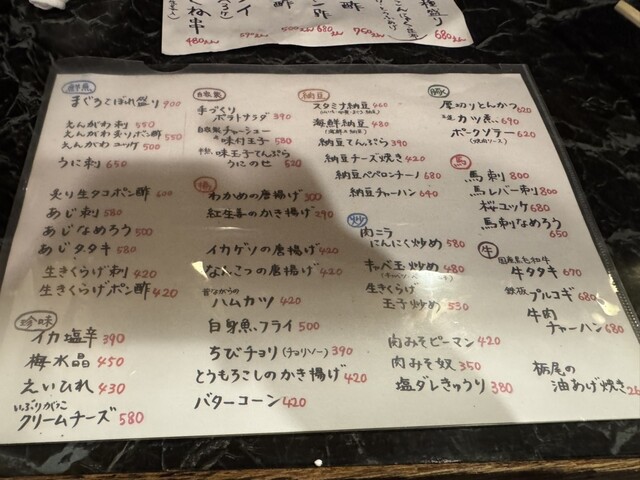 480
680
750
680
鮮魚
まぐろこぼれ盛り 900
えんがわ刺 550
えんがわ炙りポン酢 550
えんがわユッケ 500
うに刺 650
炙り生タコポン酢 600
あじ刺 580
あじなめろう 500
あじタタキ 580
生きくらげ刺 420
生きくらげポン酢 420
珍味
イカ塩辛 390
梅水晶 450
えいひれ 430
いぶりがっこ
クリームチーズ 580
自家製
手づくり
ポテトサラダ 390
自家製チャーシュー
味付玉子 580
味玉子てんぷら
うにのせ 520
揚
わかめの唐揚げ 300
紅生姜のかき揚げ 290
イカゲソの唐揚げ 420
なんこつの唐揚げ 420
昔ながらの
ハムカツ 420
白身魚フライ 500
ちびチョリ(チョリソー) 390
とうもろこしのかき揚げ 420
バターコーン 420
納豆
スタミナ納豆 460
海鮮納豆 480
納豆てんぷら 390
納豆チーズ焼き 420
納豆ペペロンチーノ 680
納豆チャーハン 640
炒
肉ニラ
にんにく炒め 580
キャベ玉炒め 480
生きくらげ
玉子炒め 530
肉みそピーマン 420
肉みそ奴 350
塩ダレきゅうり 380
豚
厚切りとんかつ 620
カツ煮 690
ポークソテー 620
馬
馬刺 800
馬レバー刺 800
桜ユッケ 680
馬刺なめろう
650
牛
国産黒毛和牛
牛タタキ 670
鉄板プルコギ 680
牛肉
チャーハン 680
栃尾の
油あげ焼き